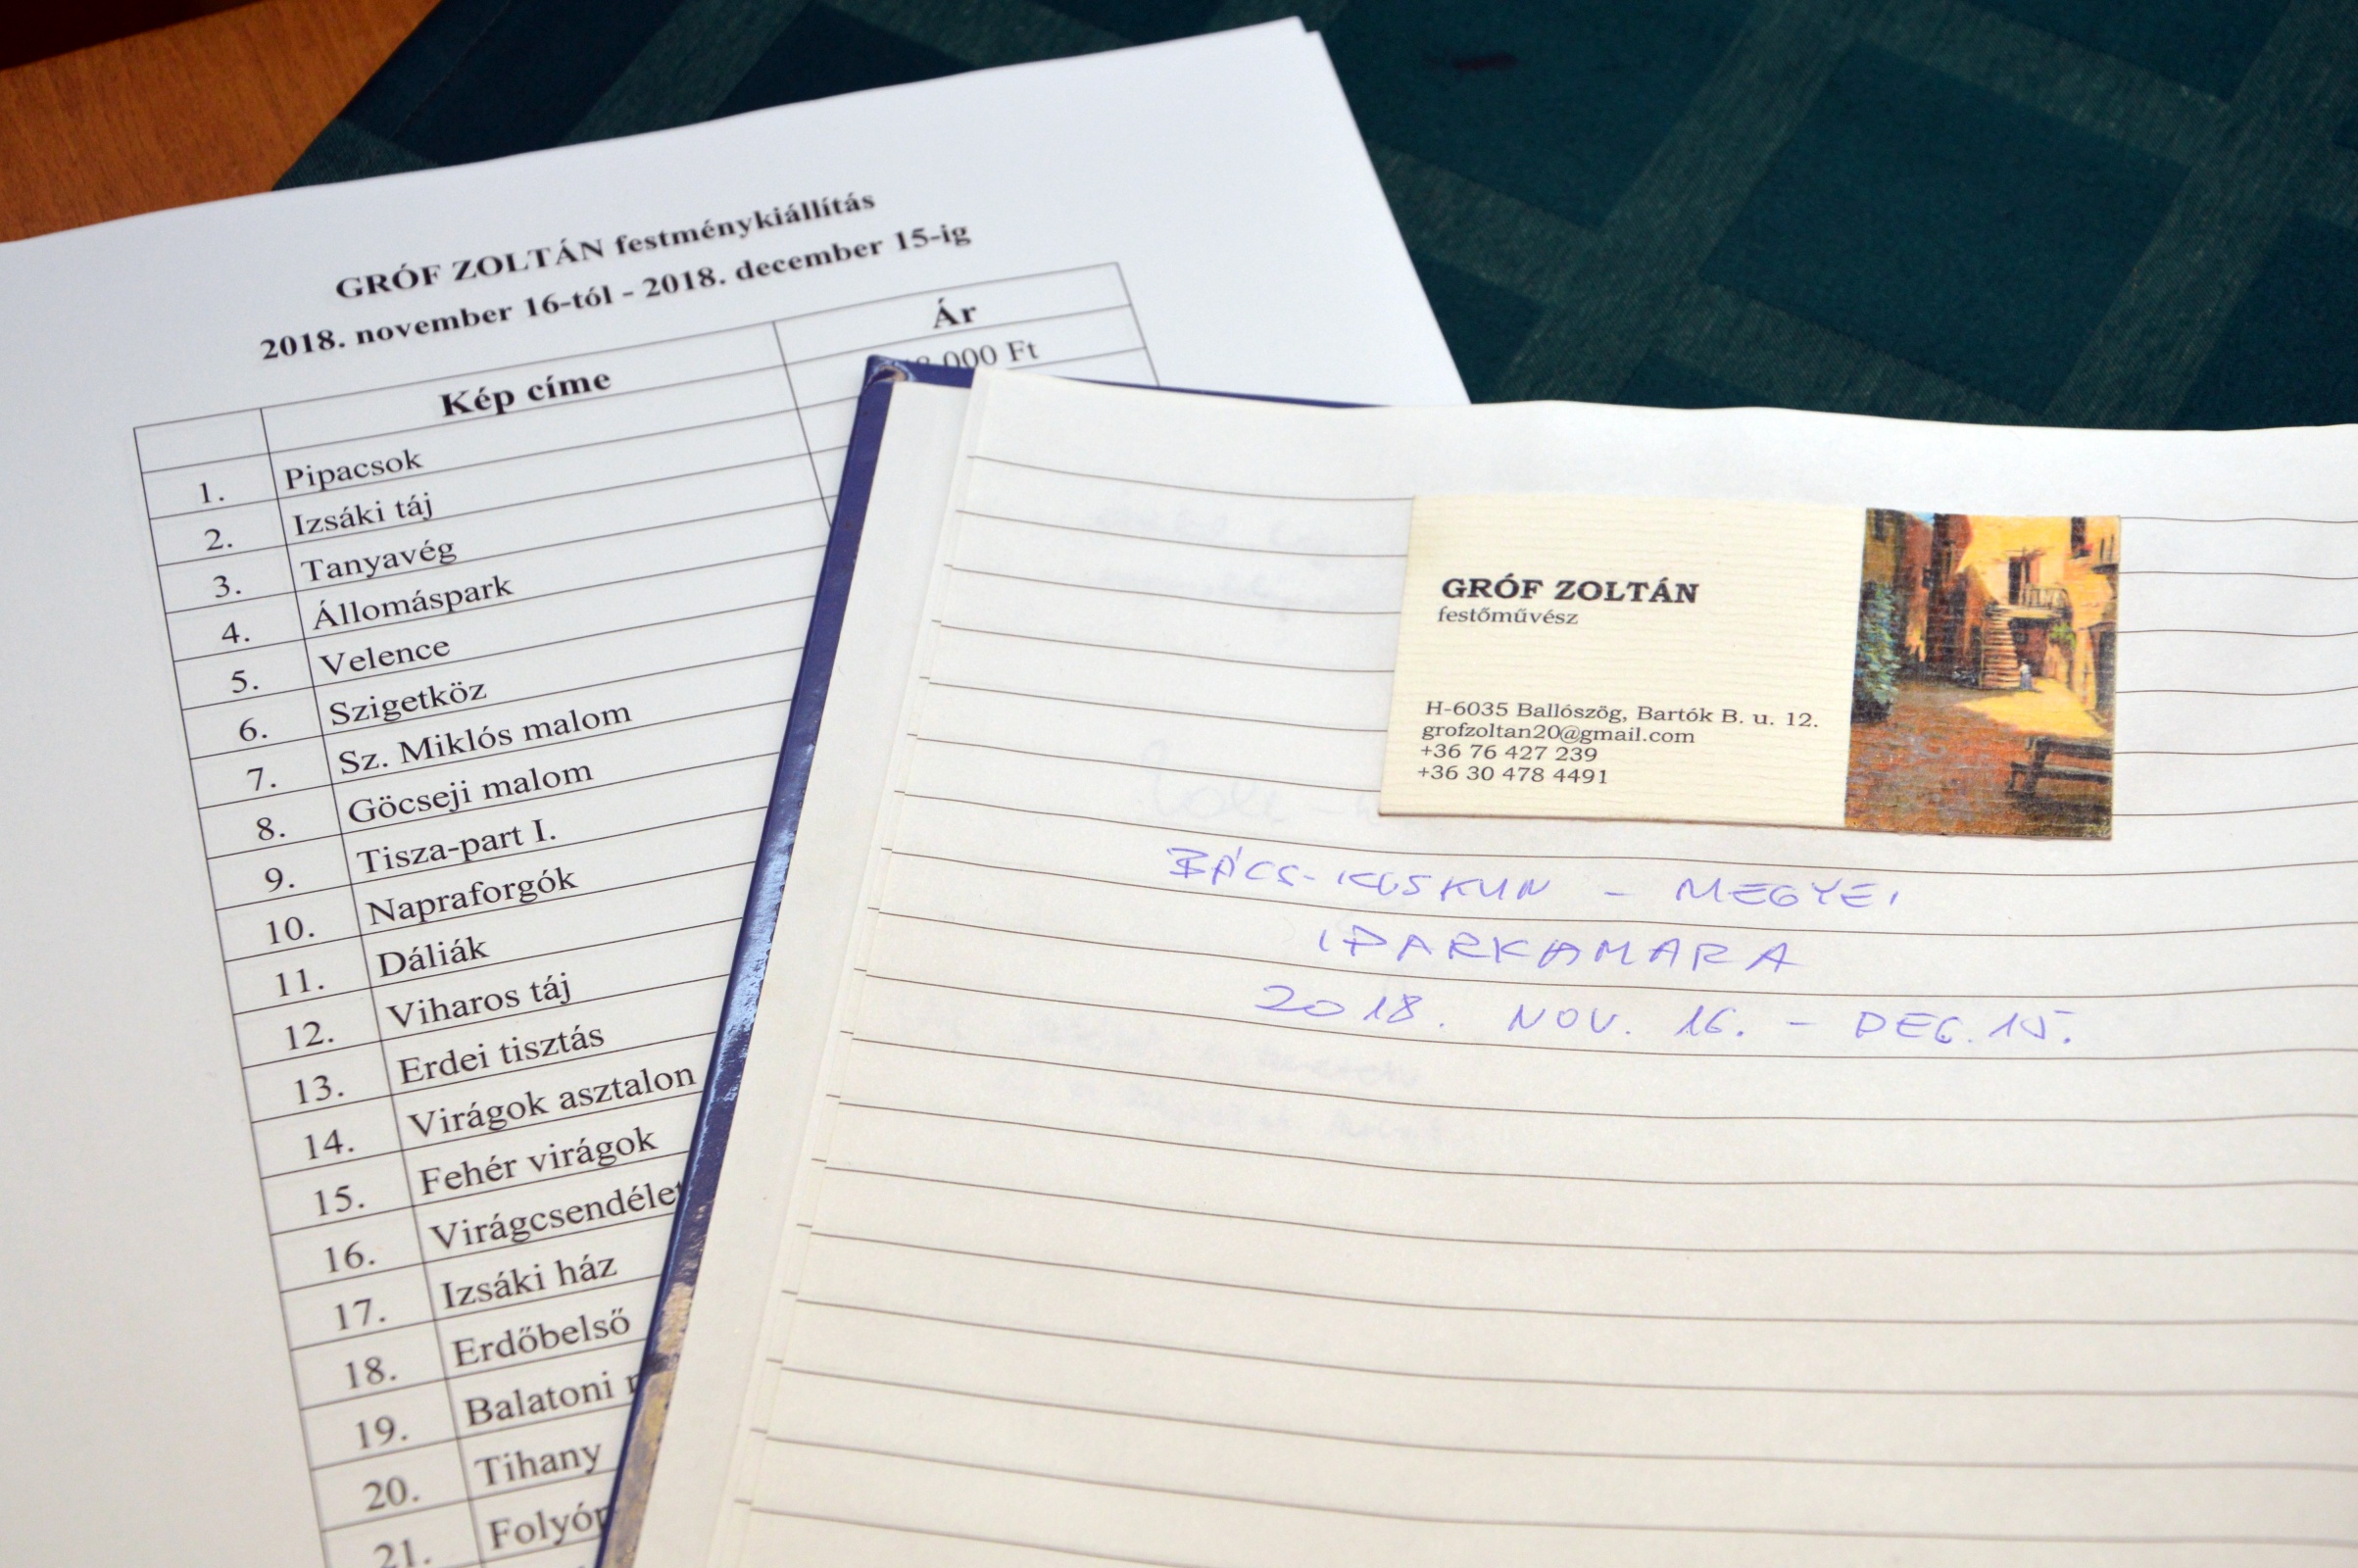 GRÓF ZOLTÁN festménykiállítás
2018. november 16-tól - 2018. december 15-ig
Kép címe Ár
1. Pipacsok 000 Ft
2. Izsáki táj
3. Tanyavég
4. Állomáspark
5. Velence
6. Szigetköz
7. Sz. Miklós malom
8. Göcseji malom
9. Tisza-part I.
10. Napraforgók
11. Dáliák
12. Viharos táj
13. Erdei tisztás
14. Virágok asztalon
15. Fehér virágok
16. Virágcsendélet
17. Izsáki ház
18. Erdőbelső
19. Balatoni
20. Tihany
21.
GRÓF ZOLTÁN
festőművész
H-6035 Ballószög, Bartók B. u. 12.
grofzoltan20@gmail.com
+36 76 427 239
+36 30 478 4491
BÁCS-KISKUN - MEGYEI
IPARKAMARA
2018. NOV. 16. - DEC. 15.